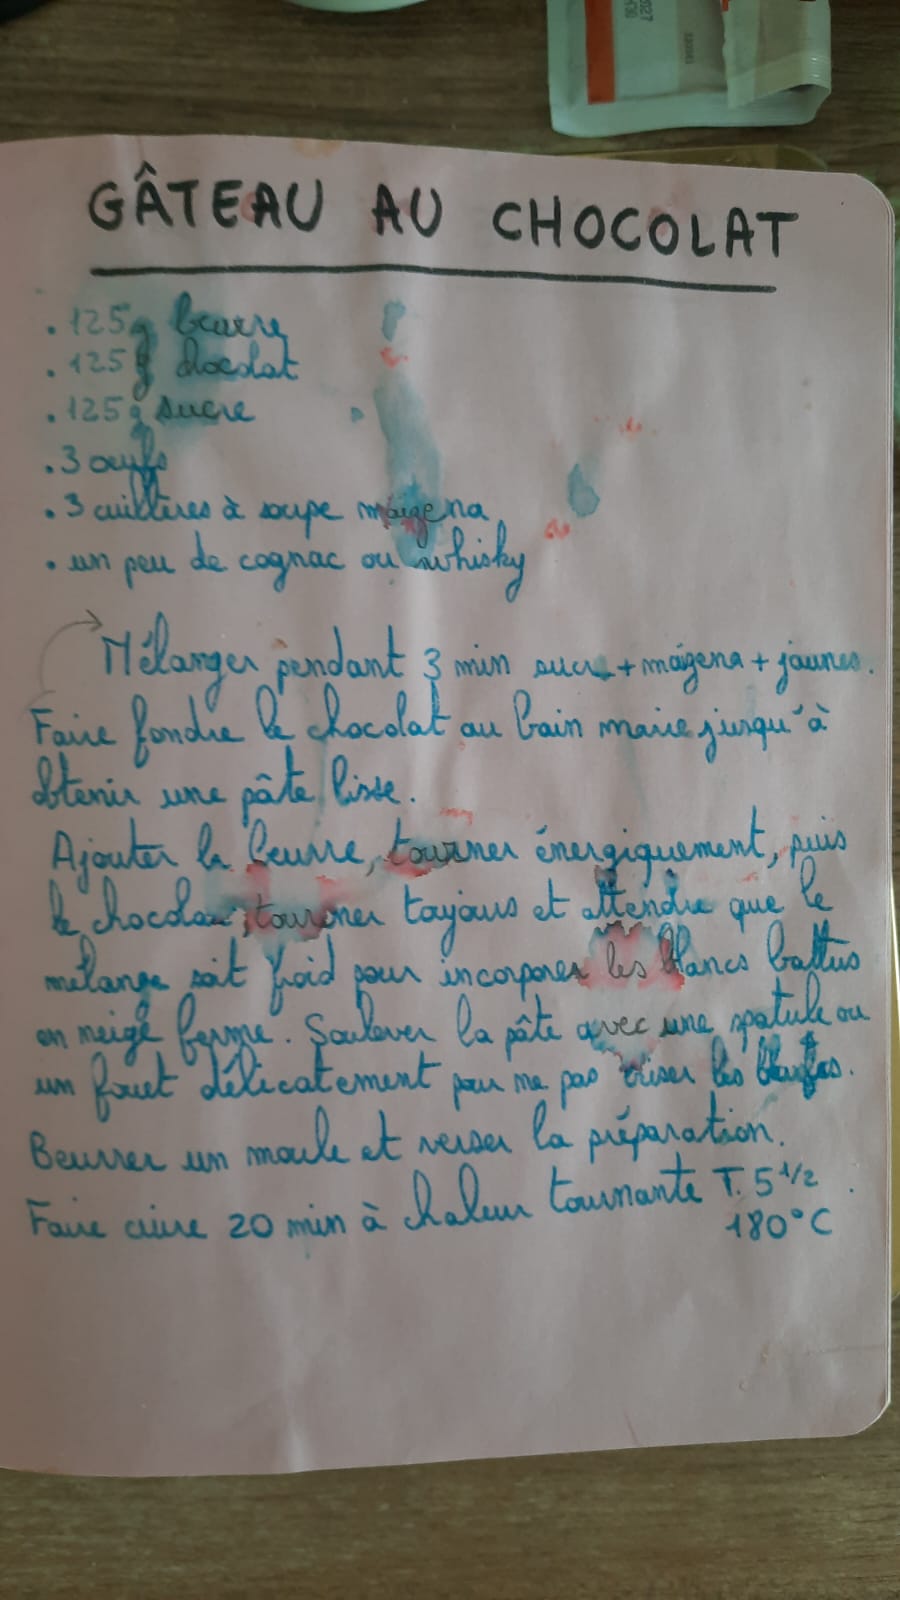 GÂTEAU AU CHOCOLAT
. 125g beurre
. 125g chocolat
. 125g sucre
. 3 oeufs
. 3 cuillères à soupe maïzena
. un peu de cognac ou whisky
Mélanger pendant 3 min sucre + maïzena + jaunes.
Faire fondre le chocolat au bain marie jusqu'à
obtenir une pâte lisse.
Ajouter le beurre, tourner énergiquement, puis
le chocolat, tourner toujours et attendre que le
mélange soit froid pour incorporer les blancs battus
en neige ferme. Soulever la pâte avec une spatule ou
un fouet délicatement pour ne pas briser les
Beurrer un moule et verser la préparation.
Faire cuire 20 min à chaleur tournante T. 5 1/2 .
180°C